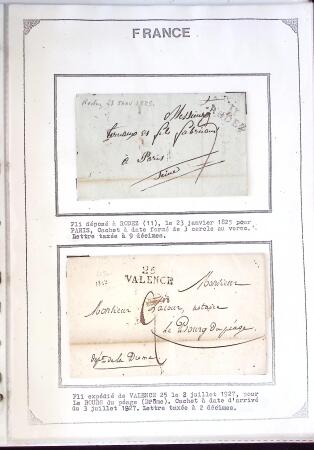 FRANCE
Rodez 23 Janv 1825.
RODEZ
Messieurs
Ternaux et fils fabricans
à Paris
Seine
Pli déposé à RODEZ (11), le 23 janvier 1825 pour
PARIS, Cachet à date formé de 3 cercle au verso.
Lettre taxée à 9 décimes.
25
VALENCE
Monsieur
Monsieur notaire
de Bourg du péage,
Dept de la Drome
Pli expédié de VALENCE 25 le 2 juillet 1927, pour
le BOURG du péage (Drôme), Cachet à date d'arrivé
du 3 juillet 1927. Lettre taxée à 2 décimes.